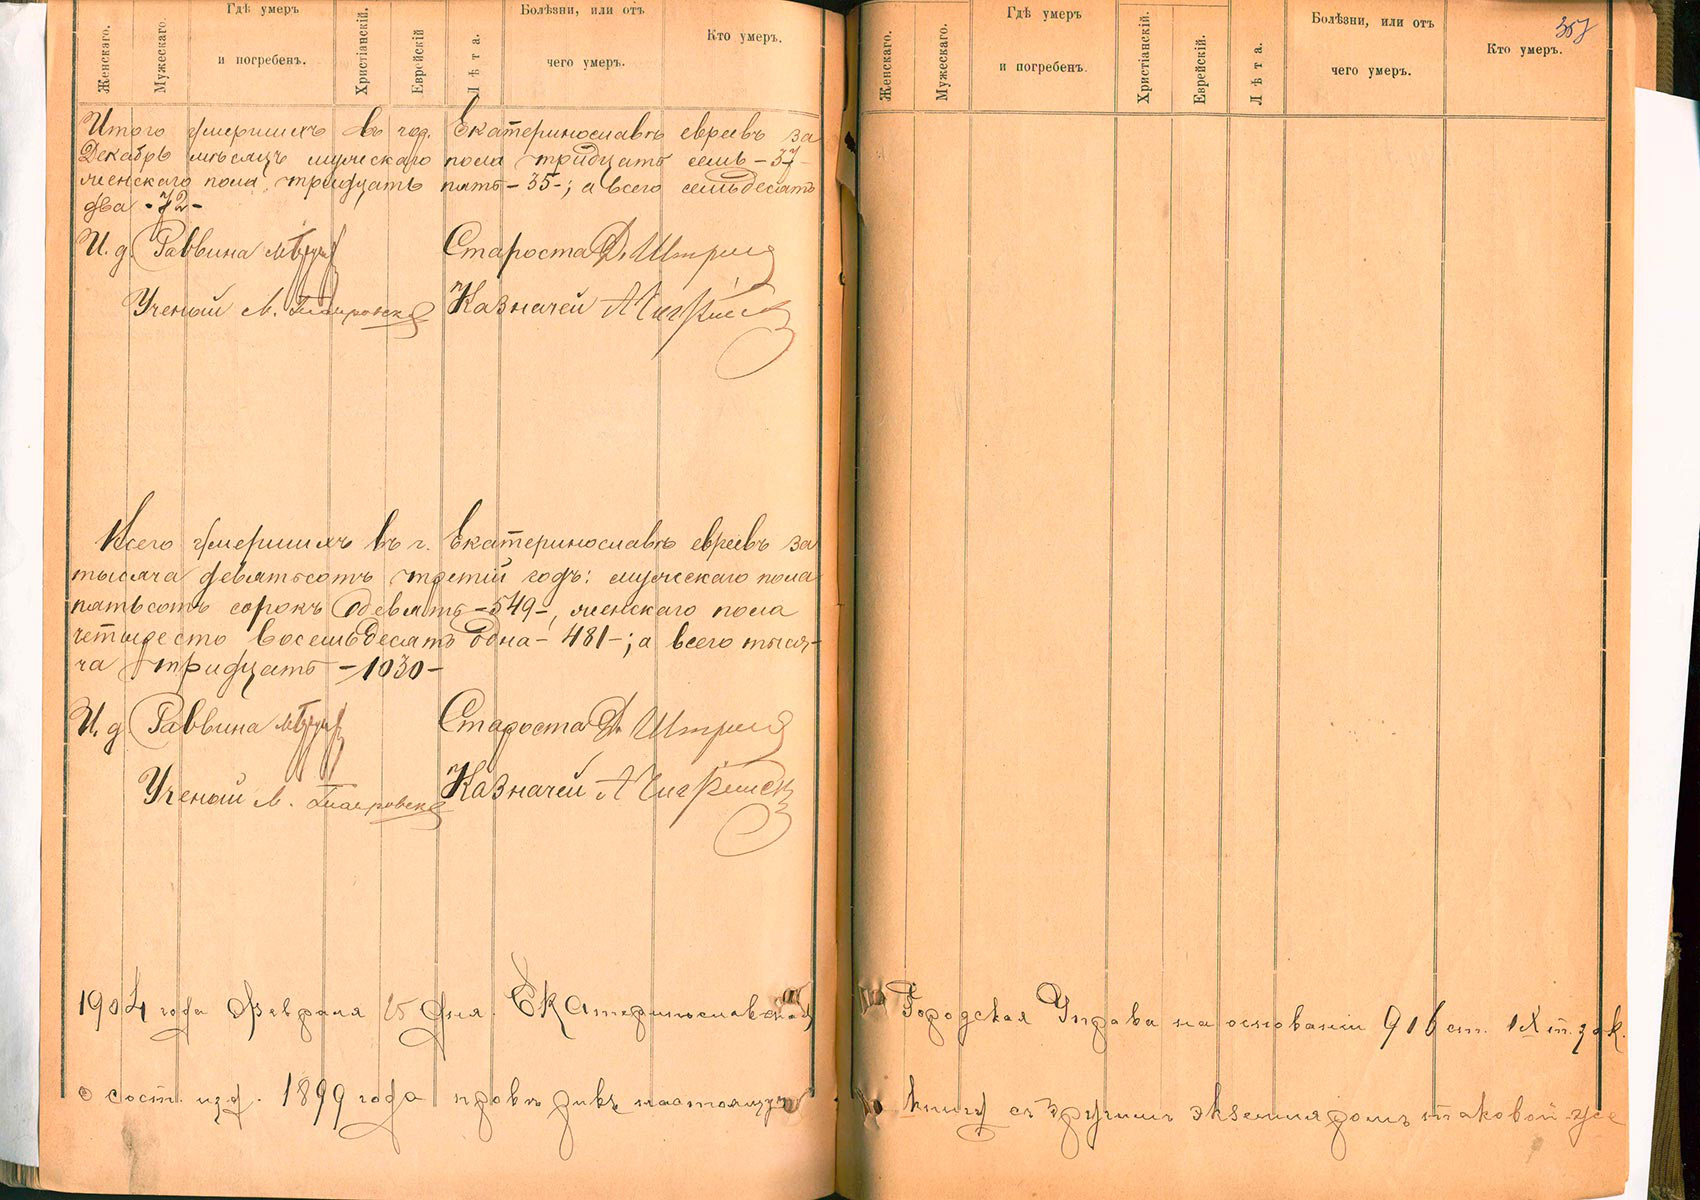 Женскаго.
Мужескаго.
Гдѣ умеръ
и погребенъ.
Христіанскій.
Еврейскій
Лѣта.
Болѣзни, или отъ
чего умеръ.
Кто умеръ.
Итого умершихъ въ гор. Екатеринославѣ евреевъ за
Декабрь мѣсяцъ мужескаго пола тридцать семь - 37 -
женскаго пола, тридцать пять - 35 -; а всего семьдесятъ
два - 72 -
И. д. Раввина
Староста Д. Штрилл
Ученый М.
Казначей А
Всего умершихъ въ г. Екатеринославѣ евреевъ за
тысяча девятьсотъ третій годъ: мужескаго пола
пятьсотъ сорокъ девять - 549 -, женскаго пола
четыреста восемьдесятъ одна - 481 -; а всего тыся-
ча тридцать - 1030 -
И. д. Раввина
Староста Д. Штрилл
Ученый М.
Казначей А
1904 года Февраля 25 дня. Екатеринославская
о сост. изд. 1899 года провѣривъ настоящую
Женскаго.
Мужескаго.
Гдѣ умеръ
и погребенъ.
Христіанскій.
Еврейскій.
Лѣта.
Болѣзни, или отъ
чего умеръ.
Кто умеръ.
357
Городская Управа на основаніи 916 ст. IX т. зак.
книгу съ другимъ экземпляромъ таковой же